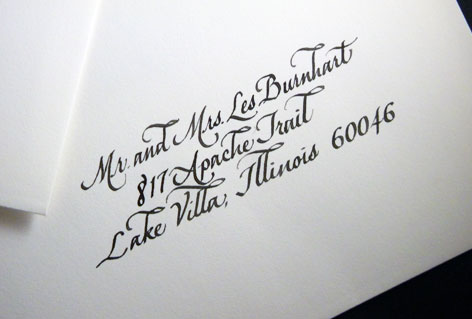 Mr. and Mrs. Les Burnhart
817 Apache Trail
Lake Villa, Illinois 60046